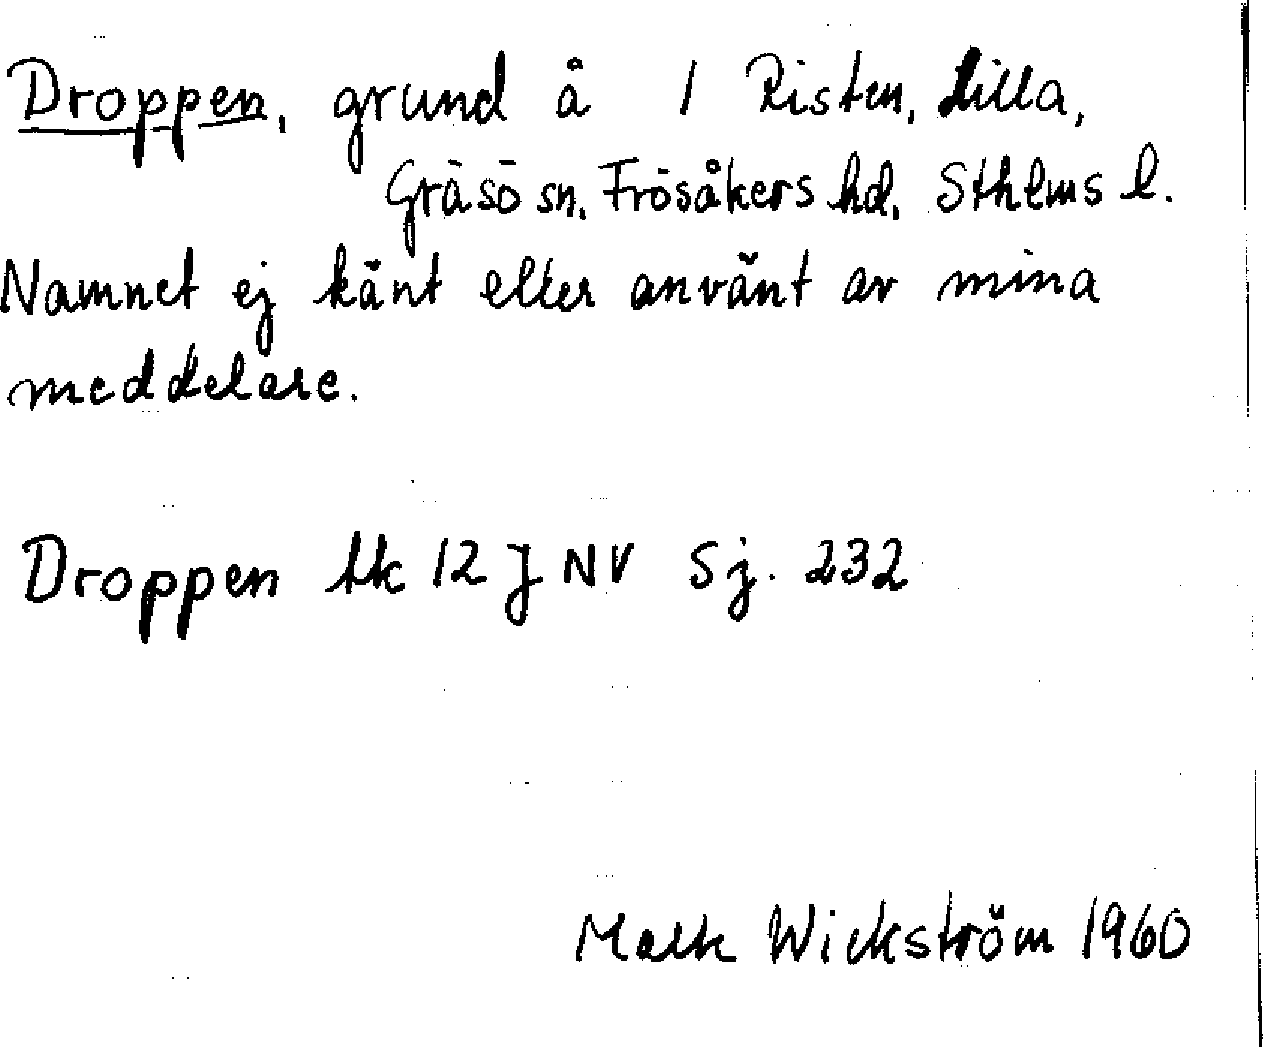 Droppen, grund å 1 Risten, Lilla,
Gräsö sn. Frösåkers hd. Sthlms l.
Namnet ej känt eller använt av mina
meddelare.
Droppen tk 12 J NV Sj. 232
Wickström 1960